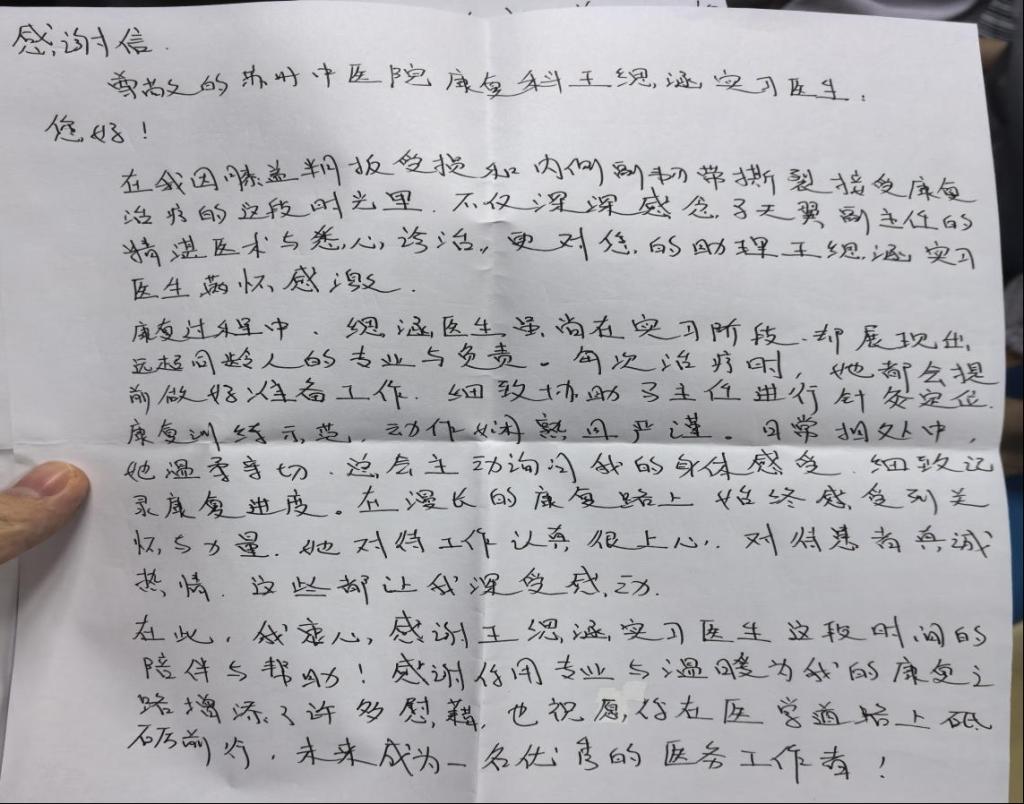 感谢信.
尊敬的苏州中医院康复科王缌涵实习医生:
您好!
在我因膝盖半月板受损和内侧副韧带撕裂接受康复
治疗的这段时光里.不仅深深感念于天翼副主任的
精湛医术与悉心诊治,更对您的助理王缌涵实习
医生满怀感激.
康复过程中.缌涵医生虽尚在实习阶段.却展现出
远超同龄人的专业与负责。每次治疗时,她都会提
前做好准备工作.细致协助于主任进行针灸定位.
康复训练示范,动作娴熟且严谨。日常相处中,
她温柔亲切.总会主动询问我的身体感受.细致记
录康复进度。在漫长的康复路上始终感受到关
怀与力量.她对待工作认真很上心.对待患者真诚
热情.这些都让我深受感动.
在此,我衷心感谢王缌涵实习医生这段时间的
陪伴与帮助!感谢你用专业与温暖为我的康复之
路增添了许多慰藉,也祝愿你在医学道路上砥
砺前行,未来成为一名优秀的医务工作者!